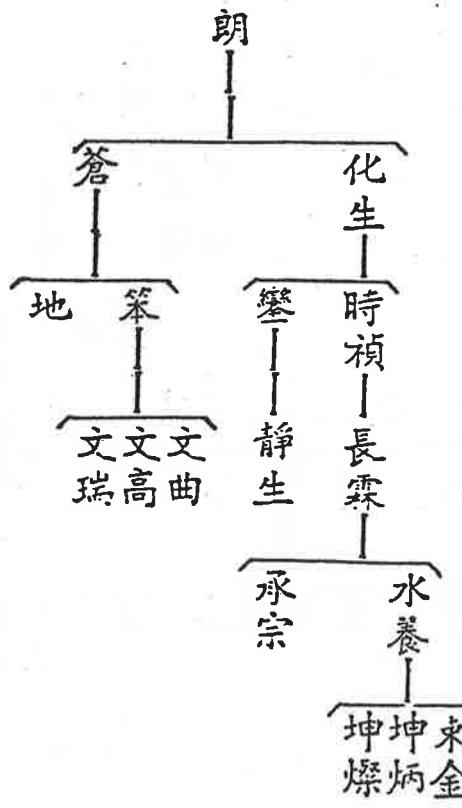 朗
化生
蒼
時禎
鑾
笨
地
長霖
靜生
文曲
文高
文瑞
水養
承宗
坤炳
坤燦